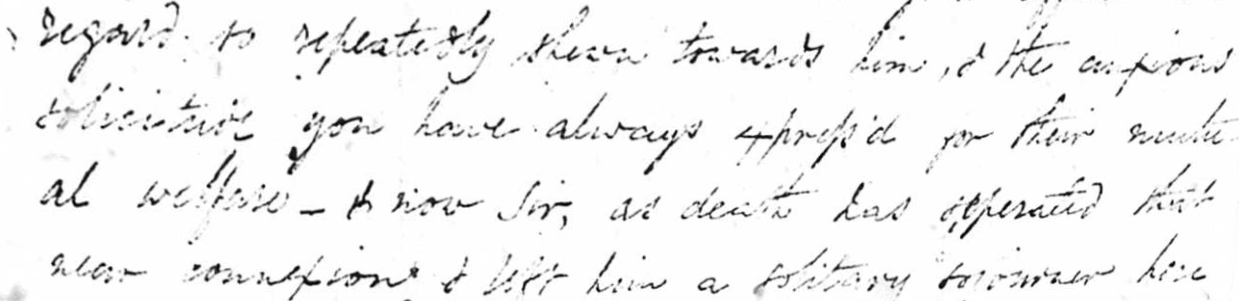 regard so repeatedly shewn towards him, & the anxious
solicitude you have always express'd for their mutu-
al welfare - & now Sir, as death has seperated that
near connexion & left him a solitary sojourner here